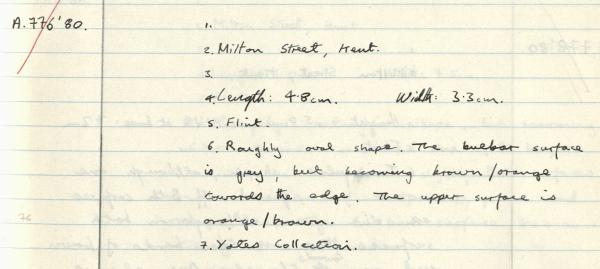 A.776'80.
1.
2. Milton Street, Kent.
3
4. Length: 4.8cm. Width: 3.3cm.
5. Flint.
6. Roughly oval shape. The bulbar surface
is grey, but becoming brown/orange
towards the edge. The upper surface is
orange/brown.
76
7. Yates Collection.